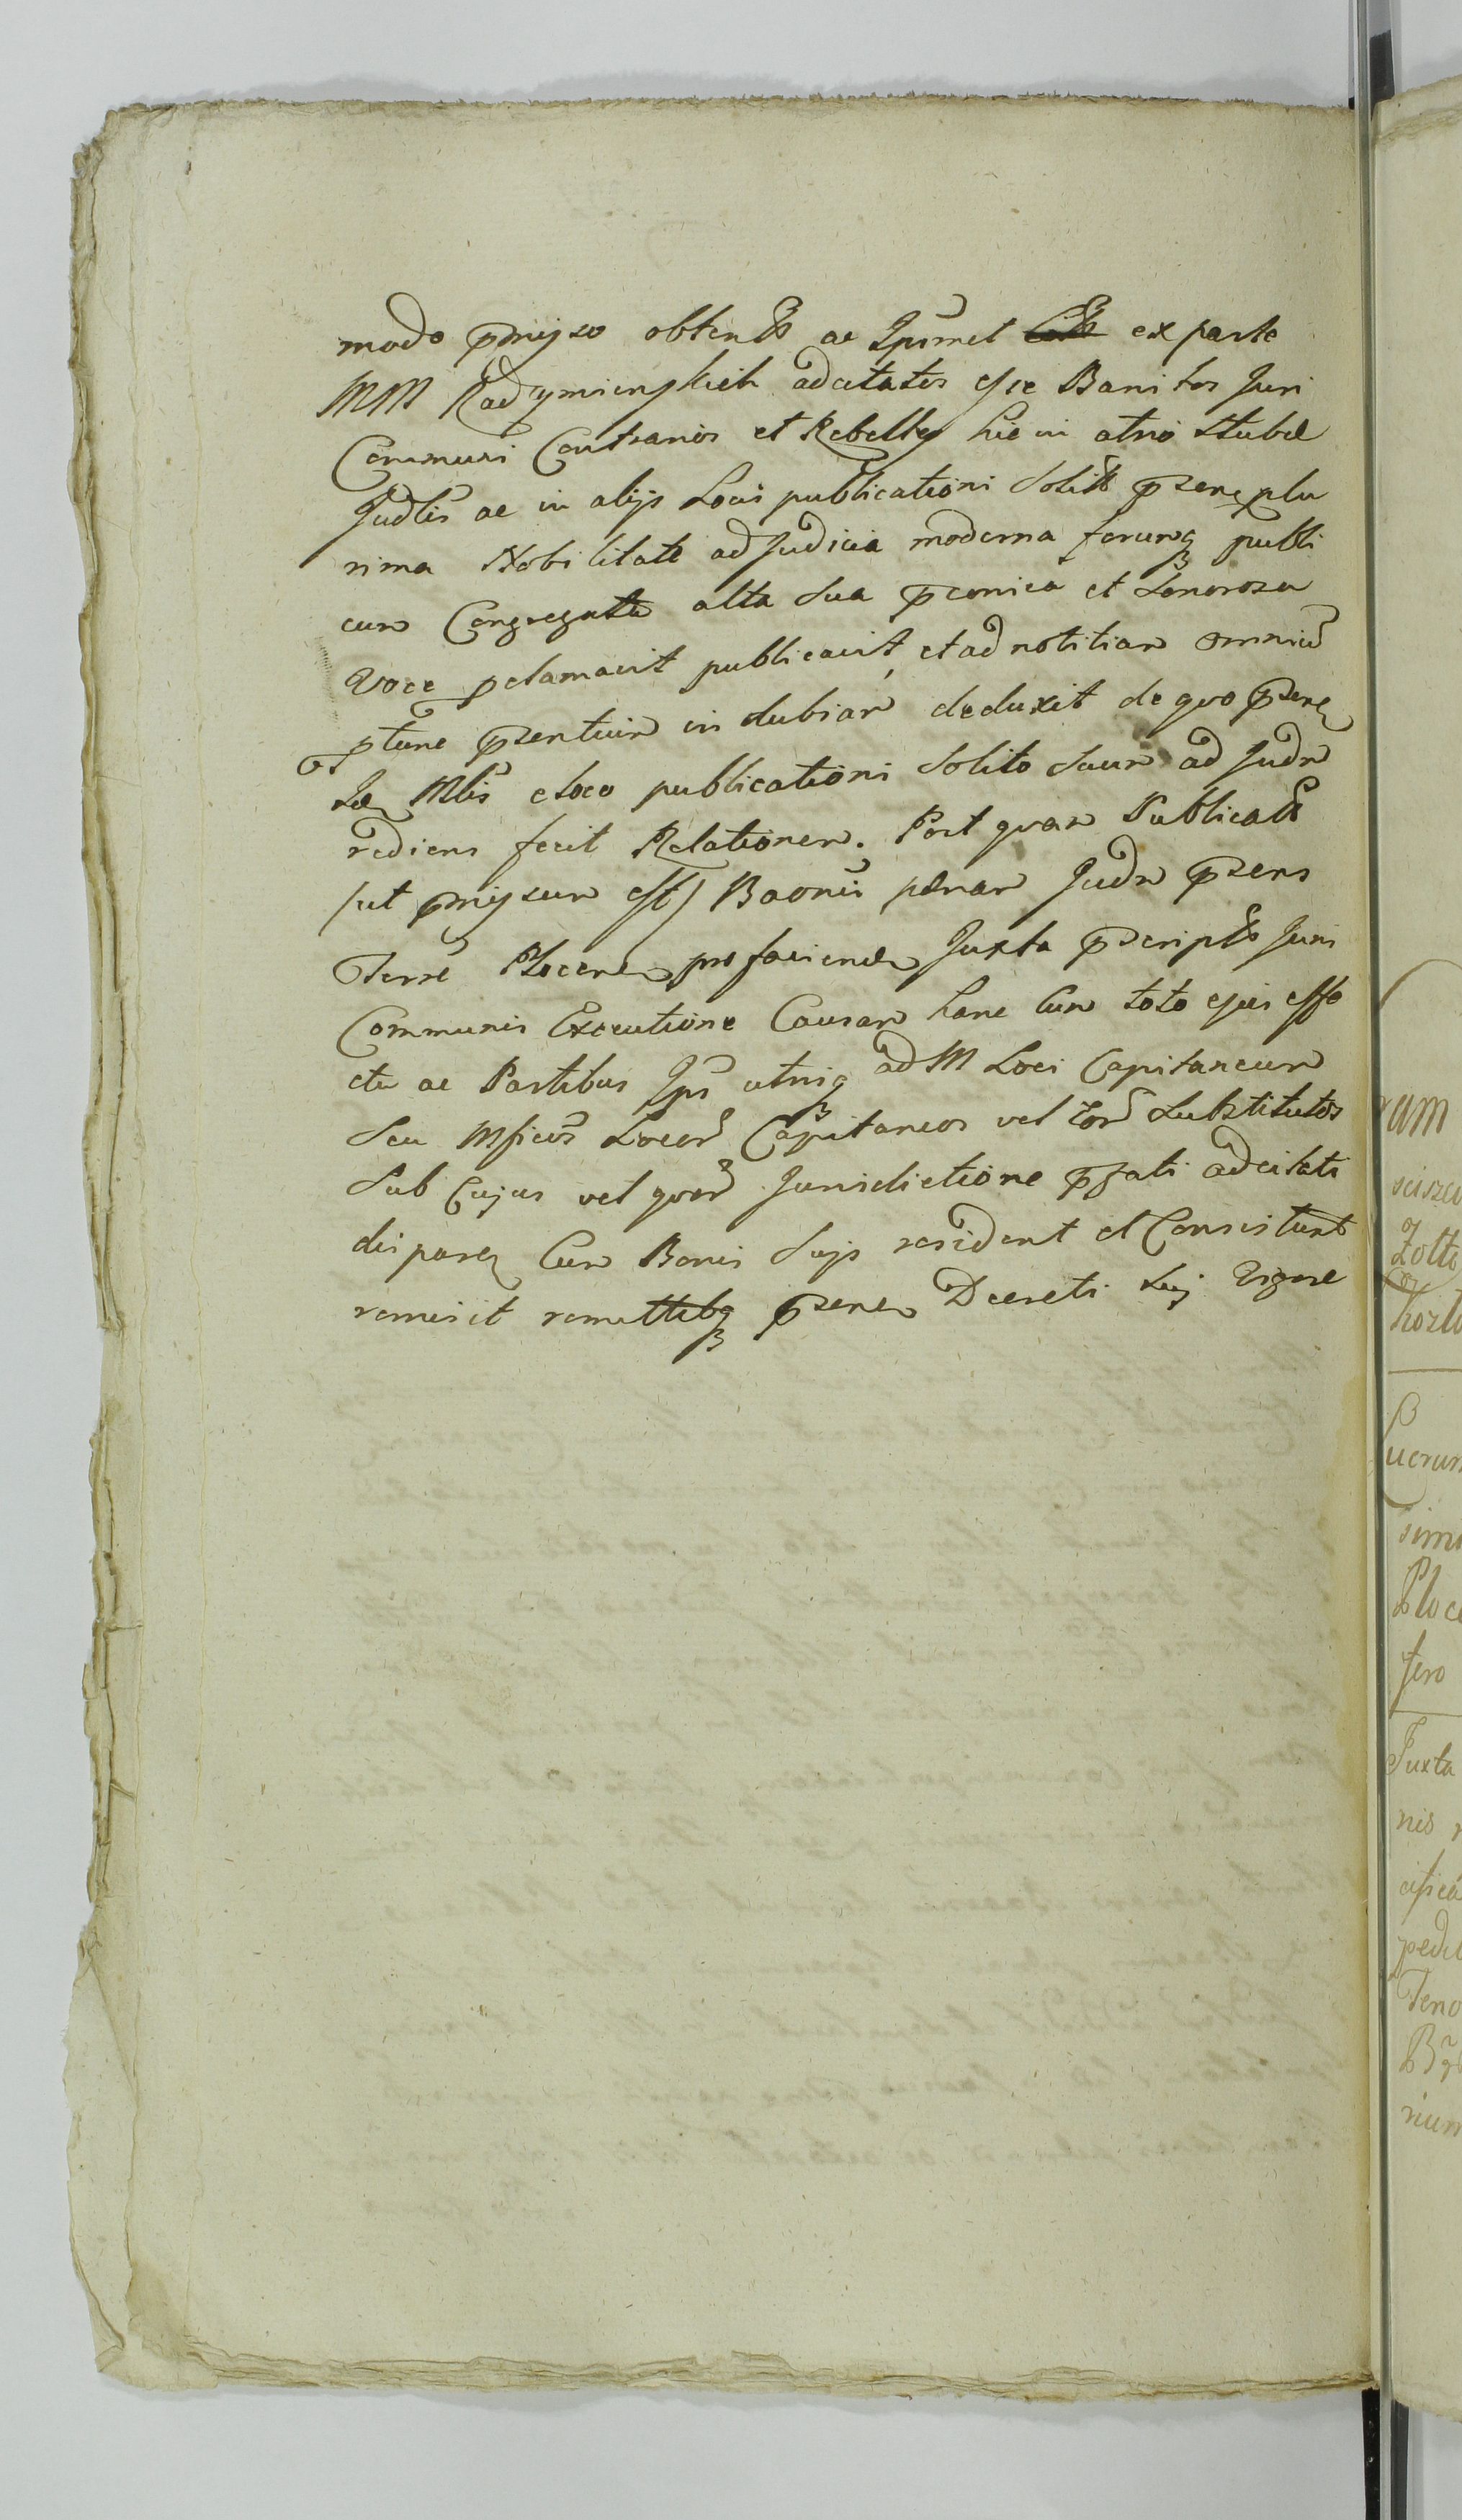 modo p̄miſso obtent̄ ac Ipsmet ex parte
MM Radzymienſkich adcitatos eſse Banitos Juri
Communi Contrarios et Rebelles hic in atrio Stubæ
Judlis ac in alijs Locis publicationi Solitis p̄sene plu
rima Nobilitate ad Judicia moderna forumq publi
cum Congregata alta Sua p̄conica et Sonorosa
Voce pclamavit publicavit, et ad notitiam omnium
ptunc p̄sentium in dubiam deduxit de quo p̄sene
e loco publicationi Solito Suum ad Judm
rediens fecit Relationem. Post quam Publicatā
/ut p̄miſsum eſt/ Baonis pœnam Judm p̄sens
Terre Plocen pro facienda Juxta p̄script Juris
Communis Executione Causam hanc Cum toto ejus effe
ctu ac Partibus Ips utrisq ad M Loci Capitaneum
Seu Mficos Locor Capitaneos vel eor Substitutos
Sub Cujus vel quor Jurisdictione p̄fati adcitati
Cum Bonis Suis resident et Consistunt
remisit remittitq p̄sen Decreti Sui Vigore
am
sciszew
Zotto
Kozto
ucrum
simi
Ploce
fero
Juxta
nis
Teno
rium